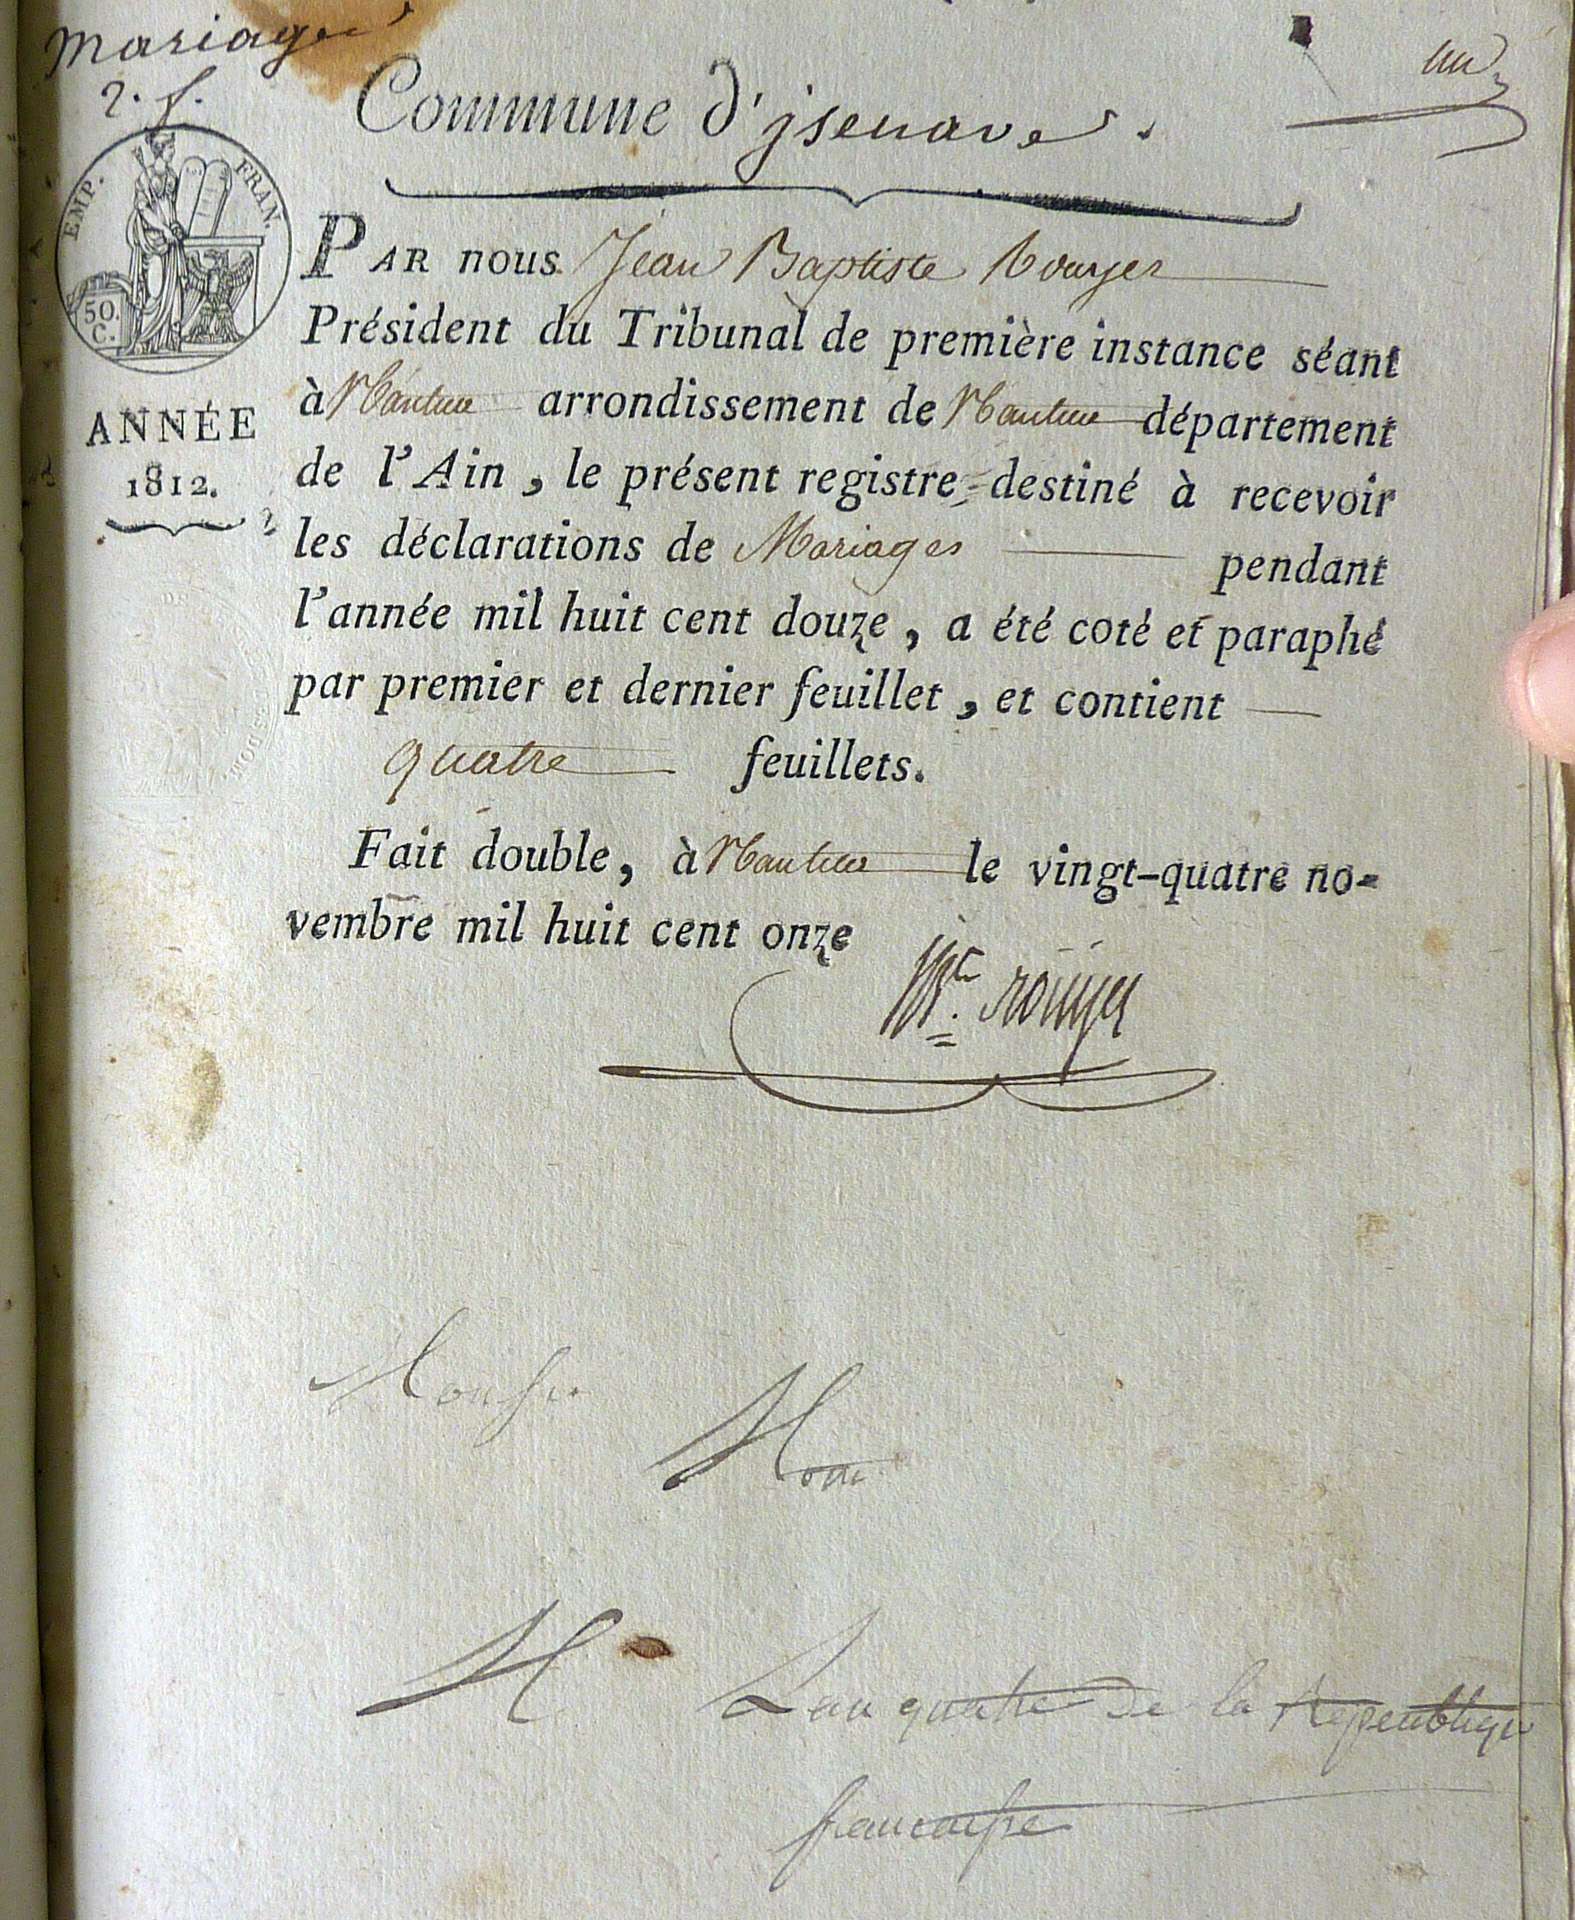 Mariages
2. f.
un
Commune d'jsenave.
EMP. FRAN.
50.
C.
ANNÉE
1812.
PAR nous Jean Baptiste Rouyer
Président du Tribunal de première instance séant
à Nantua arrondissement de Nantua département
de l'Ain, le présent registre destiné à recevoir
les déclarations de Mariages pendant
l'année mil huit cent douze, a été coté et paraphé
par premier et dernier feuillet, et contient
quatre feuillets.
Fait double, à Nantua le vingt-quatre no-
vembre mil huit cent onze
rouyer
M
Lan quatre de la Republique
francaise